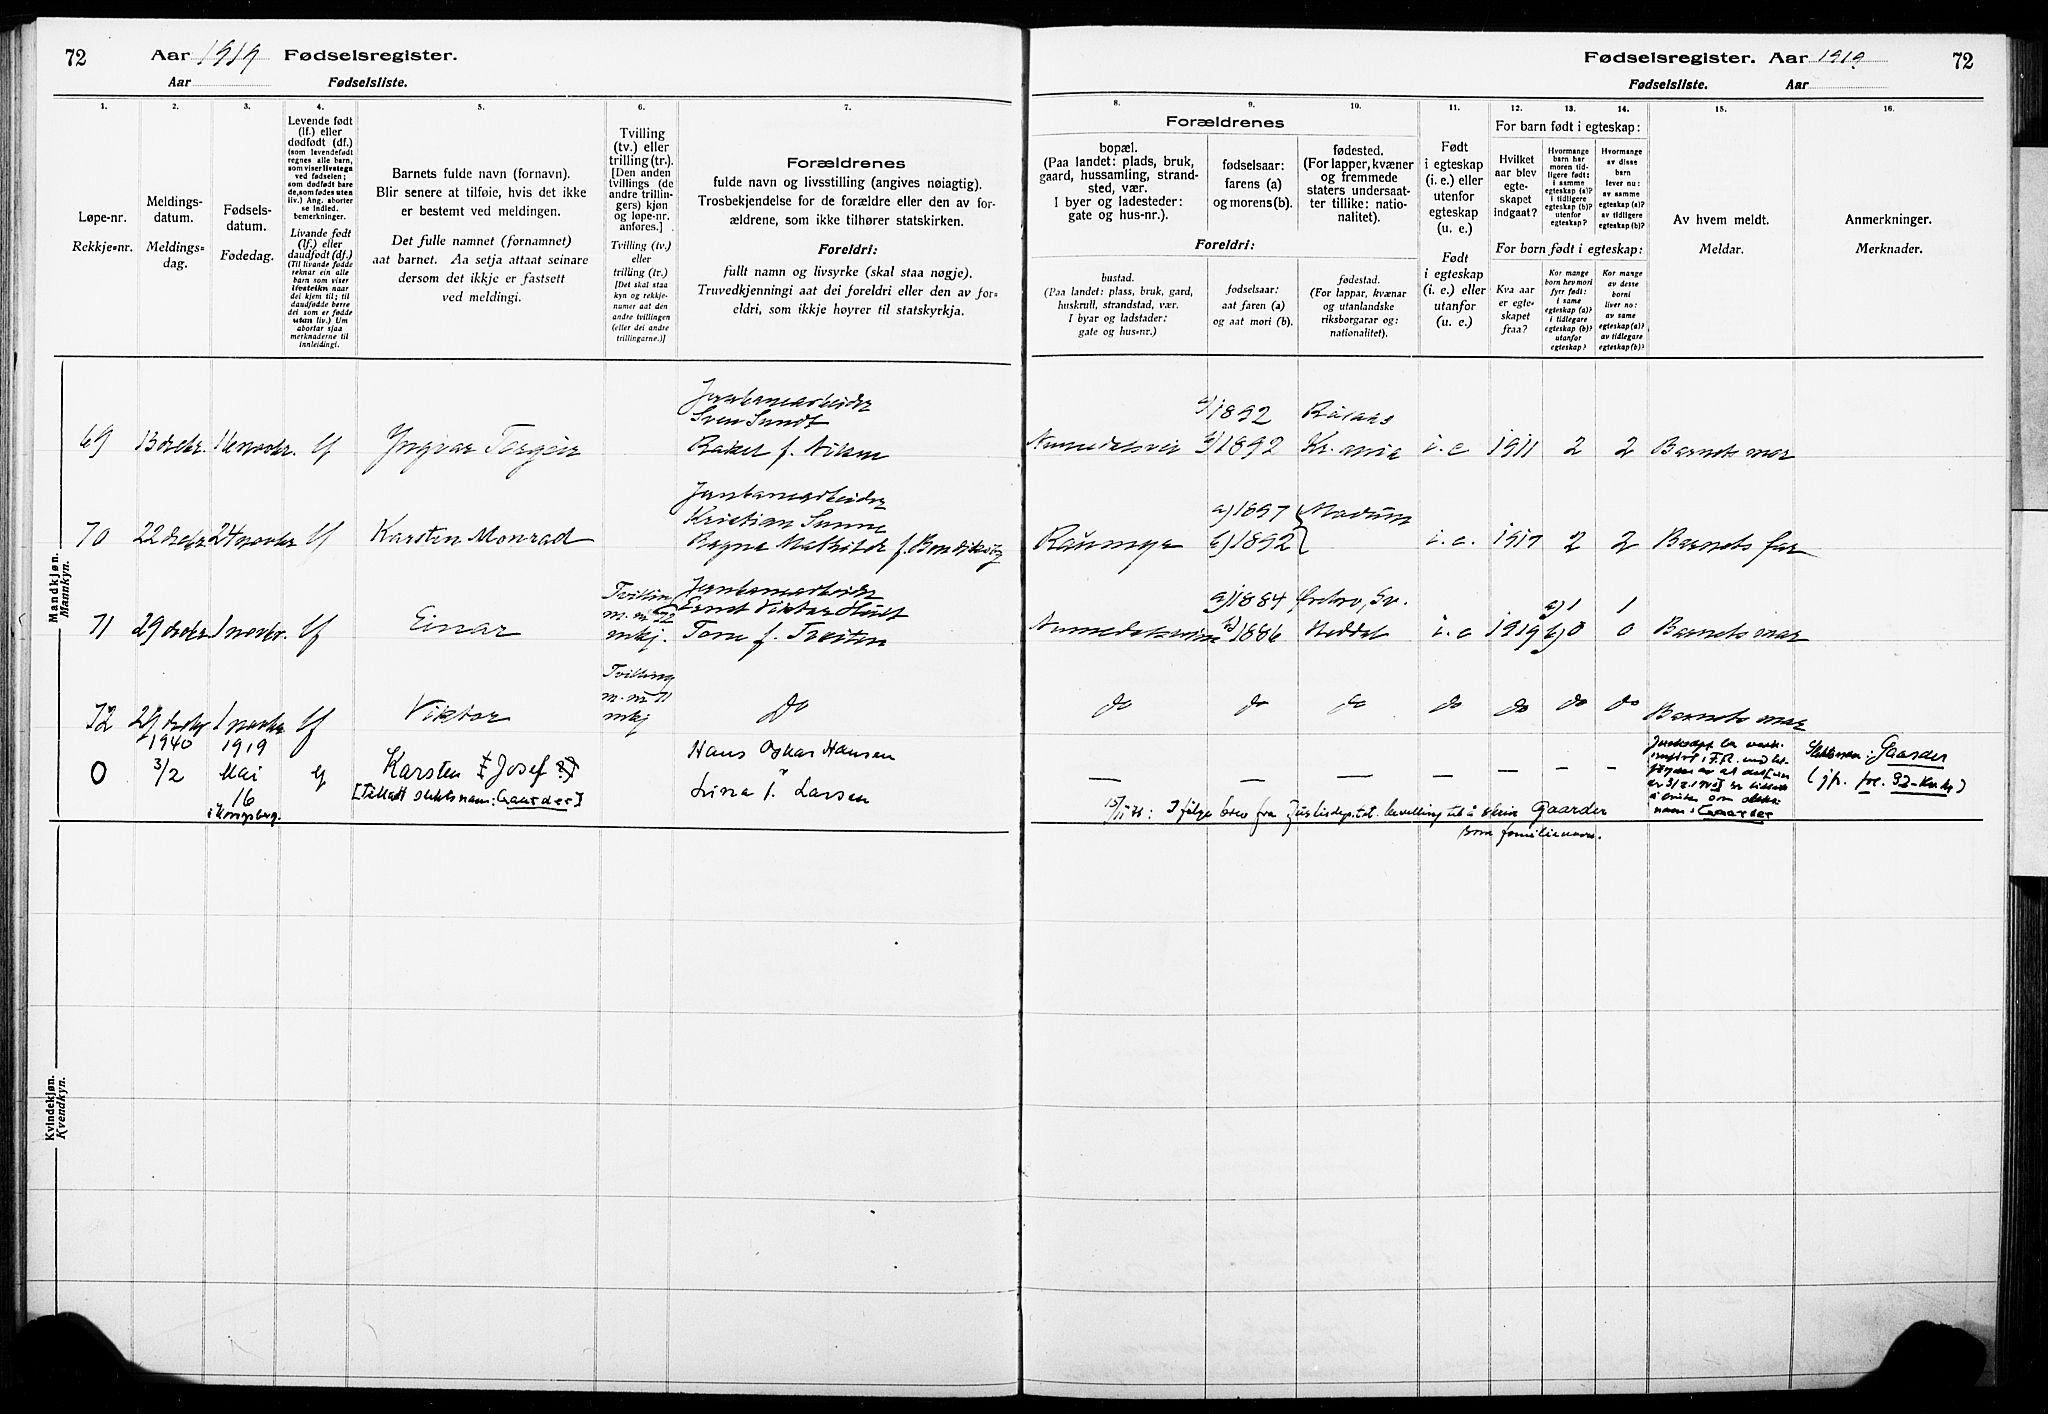 72 Aar 1919 Fødselsregister.
Aar Fødselsliste.
1. 2. 3. 4. 5. 6. 7.
Løpe-nr.
Rekkje=nr.
Meldings-
datum.
Meldings=
dag.
Fødsels-
datum.
Fødedag.
Levende født
(lf.) eller
dødfødt (df.)
(som levendefødt
regnes alle barn,
som viser livstegn
ved fødselen;
som dødfødt bare
de, som fødes uten
liv.) Ang. aborter
se indled.
bemerkninger.
Livande født
(lf.) eller
daudfødt (df.)
(Til livande fødde
reknar ein alle
barn som viser
livsteikn naar
dei kjem til; til
daudfødde berre
dei som er fødde
utan liv.) Um
abortar sjaa
merknaderne til
innleidingi.
Barnets fulde navn (fornavn).
Blir senere at tilføie, hvis det ikke
er bestemt ved meldingen.
Det fulle namnet (fornamnet)
aat barnet. Aa setja attaat seinare
dersom det ikkje er fastsett
ved meldingi.
Tvilling
(tv.) eller
trilling (tr.).
[Den anden
tvillings (de
andre trillin-
gers) kjøn
og løpe-nr.
anføres.]
Tvilling (tv.)
eller
trilling (tr.)
[Det skal staa
kyn og rekkje-
numer aat den
andre tvillingen
(eller dei andre
trillingarne.)]
Forældrenes
fulde navn og livsstilling (angives nøiagtig).
Trosbekjendelse for de forældre eller den av for-
ældrene, som ikke tilhører statskirken.
Foreldri:
fullt namn og livsyrke (skal staa nøgje).
Truvedkjenningi aat dei foreldri eller den av for-
eldri, som ikkje høyrer til statskyrkja.
Mandkjøn.
Mannkyn.
69 13 decbr. 16 novbr. lf Yngvar Torgeir
Jernbanearbeider
Sven Sundt
Rakel f. Nilsen
70 22 decbr 24 novbr lf Karsten Monrad
Jernbanearbeider
Kristian Sunne
Ragna Mathilde f.
71 29 decbr 1 novbr. lf Einar
Tvilling
m. nr 72
mkj.
Jernbanearbeider
Ernst Viktor Hult
Tone f. Tveiten
72 29 decbr 1 novbr lf Viktor
Tvilling
m. nr 71
mkj
Do
0 1940 3/2 1919 Mai 16 i Kongsberg. lf Karsten Josef
[Tillatt slektsnavn: Gaarder]
Hans Oskar Hansen
Lina f. Larsen
Kvindekjøn.
Kvendkyn.
Fødselsregister. Aar 1919 72
Fødselsliste. Aar
8. 9. 10. 11. 12. 13. 14. 15. 16.
Forældrenes
bopæl.
(Paa landet: plads, bruk,
gaard, hussamling, strand-
sted, vær.
I byer og ladesteder:
gate og hus-nr.).
fødselsaar:
farens (a)
og morens (b).
fødested.
(For lapper, kvæner
og fremmede
staters undersaat-
ter tillike: natio-
nalitet).
Foreldri:
bustad.
(Paa landet: plass, bruk, gard,
huskrull, strandstad, vær.
I byar og ladstader:
gate og hus=nr.)
fødselsaar:
aat faren (a)
og aat mori (b).
fødestad.
(For lappar, kvænar
og utanlandske
riksborgarar og:
nationalitet).
Født
i egteskap
(i. e.) eller
utenfor
egteskap
(u. e.)
Født
i egteskap
(i. e.) eller
utanfor
(u. e.)
For barn født i egteskap:
Hvilket
aar blev
egte-
skapet
indgaat?
Hvormange
barn har
moren tid-
ligere født:
i samme
egteskap (a)?
i tidligere
egteskap (b)?
utenfor
egteskap?
Hvormange
av disse
barn
lever nu:
av samme
egteskap (a)?
av tidligere
egteskap (b)?
For born født i egteskap:
Kva aar
er egte-
skapet
fraa?
Kor mange
born hev mori
fyrr født:
i same
egteskap (a)?
i tidlegare
egteskap (b)?
utanfor
egteskap?
Kor mange
av desse
borni
liver no:
av same
egteskap (a)?
av tidlegare
egteskap (b)?
Av hvem meldt.
Meldar.
Anmerkninger.
Merknader.
a) 1892
Numedalsvei b) 1892 Kr.ania i. e 1911 2 2 Barnets mor
a) 1897 Modum
b) 1892 i. e. 1917 2 2 Barnets far
a) 1884 Örebro, Sv. a) 1 1
Numedalsveien b) 1886 Heddal i. e 1919 b) 0 0 Barnets mor
do do do do do do do Barnets mor
— — — — — — —
er tillatt
Gaarder
Slektsnavn: Gaarder
(jfr. fol. 92-
15/11 46: Ifølge brev fra Justisdep. tet. bevilling til å skrive Gaarder
som familienavn.